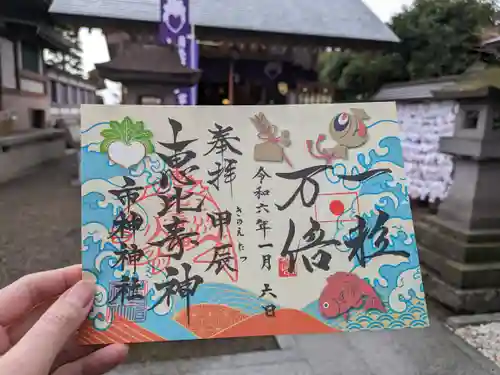 一粒
万倍
令和六年一月六日
奉拝 甲辰
きのえたつ
恵比寿神
市神神社